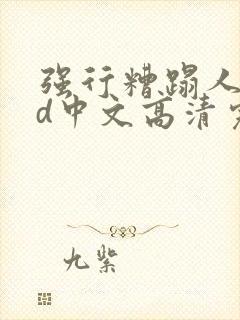 强行糟蹋人
d中文高清
九紫